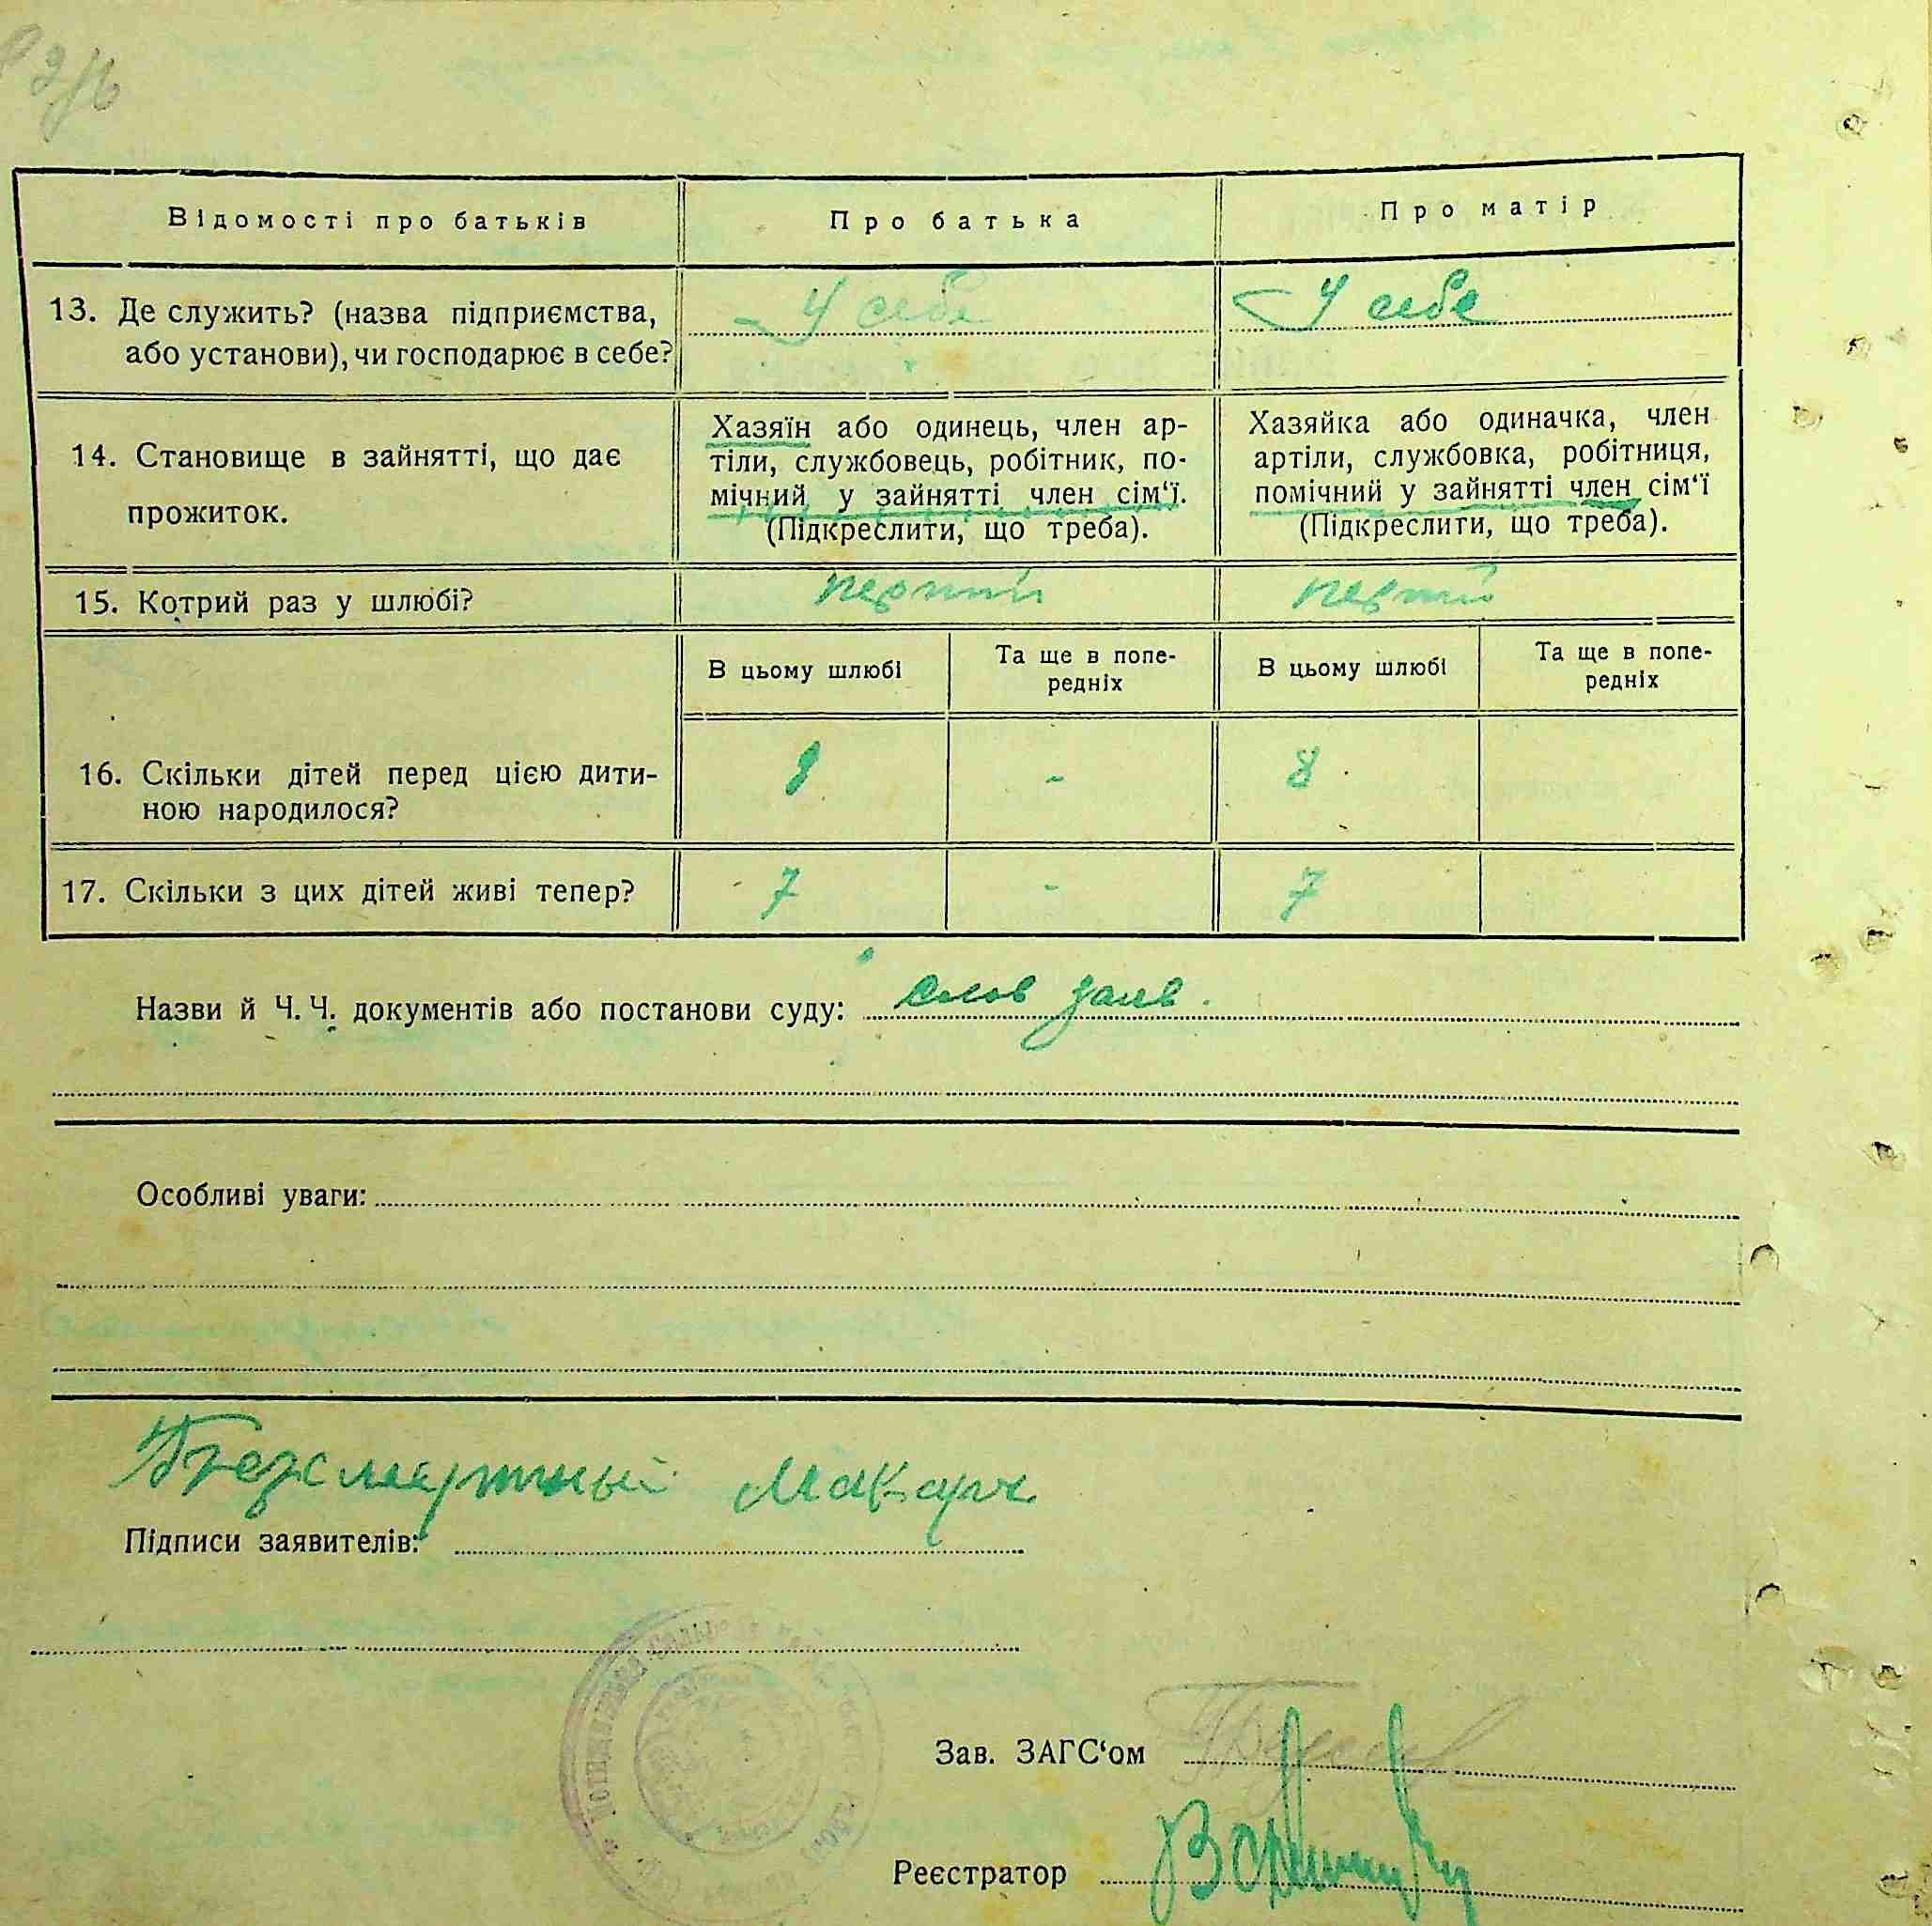 Відомості про батьків Про батька Про матір
13. Де служить? (назва підприємства, У себе У себе
або установи), чи господарює в себе?
14. Становище в зайнятті, що дає
прожиток.
Хазяїн або одинець, член ар-
тіли, службовець, робітник, по-
мічний у зайнятті член сім‘ї.
(Підкреслити, що треба).
Хазяйка або одиначка, член
артіли, службовка, робітниця,
помічний у зайнятті член сім‘ї
(Підкреслити, що треба).
15. Котрий раз у шлюбі? перший перший
В цьому шлюбі Та ще в попе- В цьому шлюбі Та ще в попе-
редніх редніх
16. Скільки дітей перед цією дити- 8 - 8
ною народилося?
17. Скільки з цих дітей живі тепер? 7 - 7
Назви й Ч. Ч. документів або постанови суду: слов заяв.
Особливі уваги:
Безсмертный Макарь
Підписи заявителів:
Зав. ЗАГС‘ом
Реєстратор